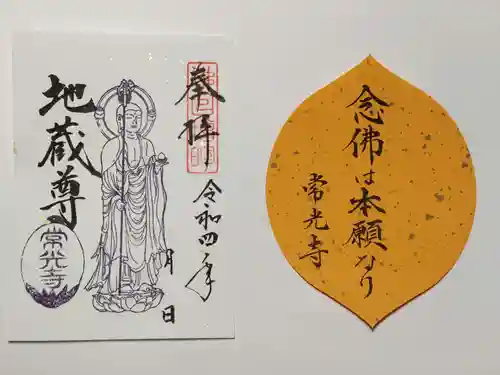 奉拝
令和四年
月
日
地蔵尊
常光寺
念佛は本願なり
常光寺